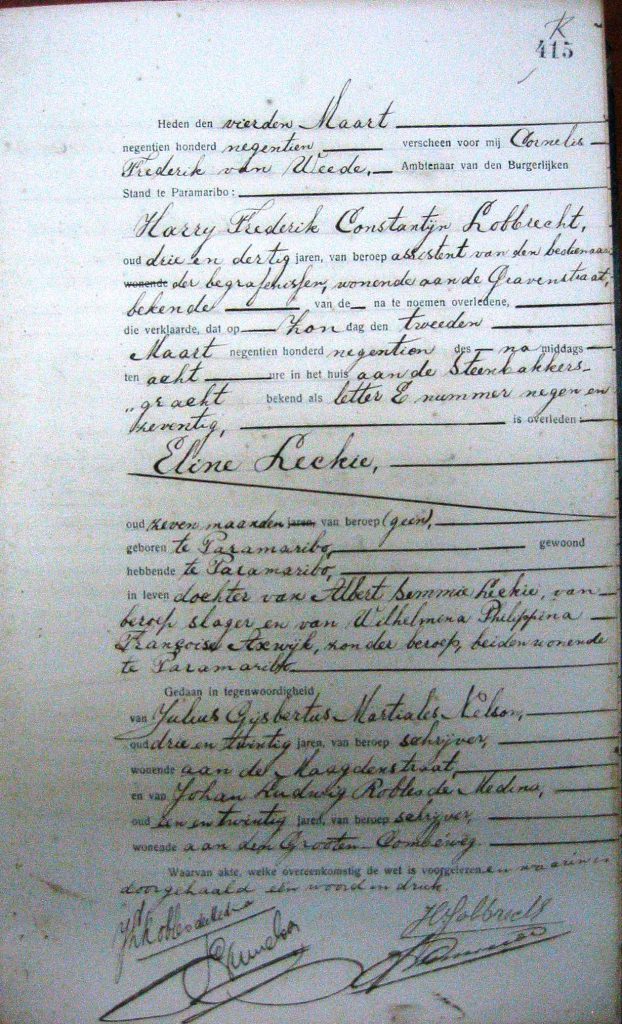 K
415
Heden den vierden Maart
negentien honderd negentien verscheen voor mij Cornelis
Frederik van Weede, Ambtenaar van den Burgerlijken
Stand te Paramaribo:
Harry Frederik Constantijn Lobbrecht,
oud drie en dertig jaren, van beroep assistent van den bedienaar
wonende der begrafenissen, wonende aan de Gravenstraat,
bekende van de na te noemen overledene,
die verklaarde, dat op Zon dag den tweeden
Maart negentien honderd negentien des na middags
ten acht ure in het huis aan de Steenbakkers-
„gracht bekend als letter E nummer negen en
zeventig, is overleden:
Eline Leckie,
oud zeven maanden jaren, van beroep (geen),
geboren te Paramaribo, gewoond
hebbende te Paramaribo,
in leven dochter van Albert Semmie Leckie, van
beroep slager en van Wilhelmina Philippina
Françoise Axwijk, zonder beroep, beiden wonende
te Paramaribo.
Gedaan in tegenwoordigheid
van Julius Gysbertus Martiales Nelson,
oud drie en twintig jaren, van beroep schrijver,
wonende aan de Maagdenstraat,
en van Johan Ludwig Robles de Medina,
oud een en twintig jaren, van beroep schrijver,
wonende aan den Grooten Combéweg.
Waarvan akte, welke overeenkomstig de wet is voorgelezen en waarin is
doorgehaald een woord in druk.
JLRobles de Medina